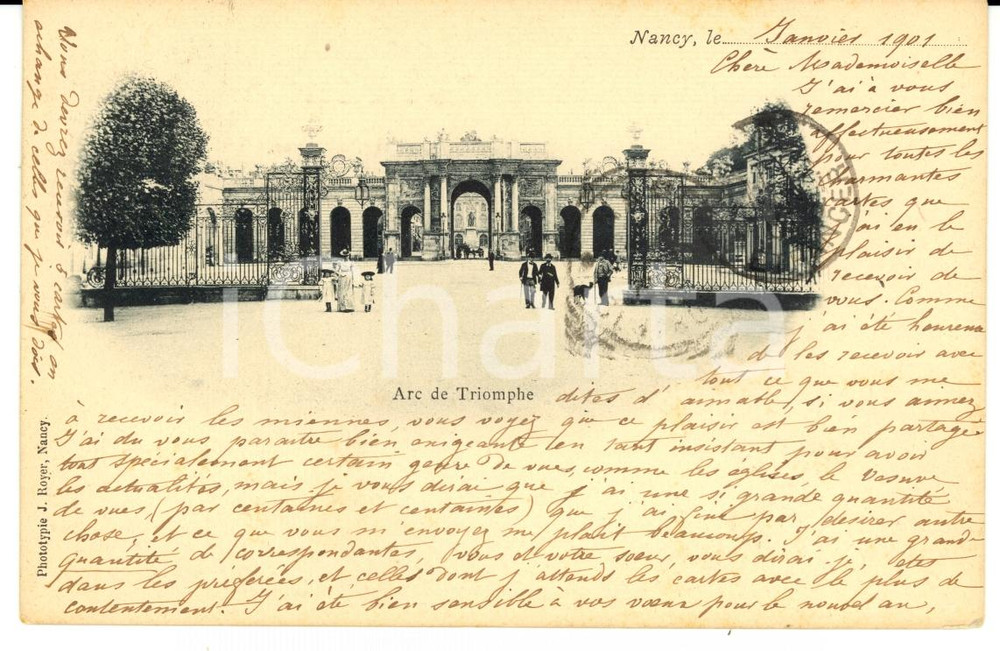 Nancy, le Janvier 1901
Chère Mademoiselle
J'ai à vous
remercier bien
affectueusement
pour toutes les
charmantes
cartes que
j'ai eu le
plaisir de
recevoir de
vous. Comme
j'ai été heureux
de les recevoir avec
tout ce que vous me
Arc de Triomphe
dites d'aimable, si vous aimez
à recevoir les miennes, vous voyez que ce plaisir est bien partagé
J'ai du vous paraître bien exigeante en tant insistant pour avoir
tout spécialement certain genre de vues, comme les églises, le Vésuve,
les actualités, mais je vous dirai que j'ai une si grande quantité
de vues, (par centaines et centaines) que j'ai fini par désirer autre
chose, et ce que vous m'envoyez me plait beaucoup. J'ai une grande
quantité de correspondantes, vous et votre soeur, vous dirai je, êtes
dans les préférées, et celles dont j'attends les cartes avec le plus de
contentement. J'ai été bien sensible à vos voeux pour le nouvel an,
Vous devez recevoir 5 cartes en
échange de celles que je vous dois.
Phototypie J. Royer, Nancy.
iCharta